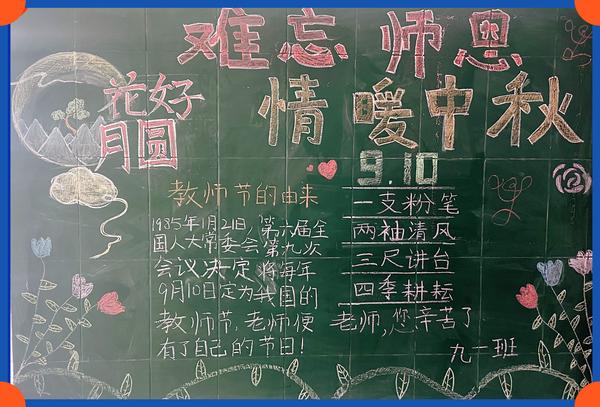 难忘师恩
情暖中秋
花好
月圆
9.10
教师节的由来
1985年1月21日,第六届全
国人大常委会第九次
会议决定将每年
9月10日定为我国的
教师节,老师便
有了自己的节日!
一支粉笔
两袖清风
三尺讲台
四季耕耘
老师,您辛苦了
九一班